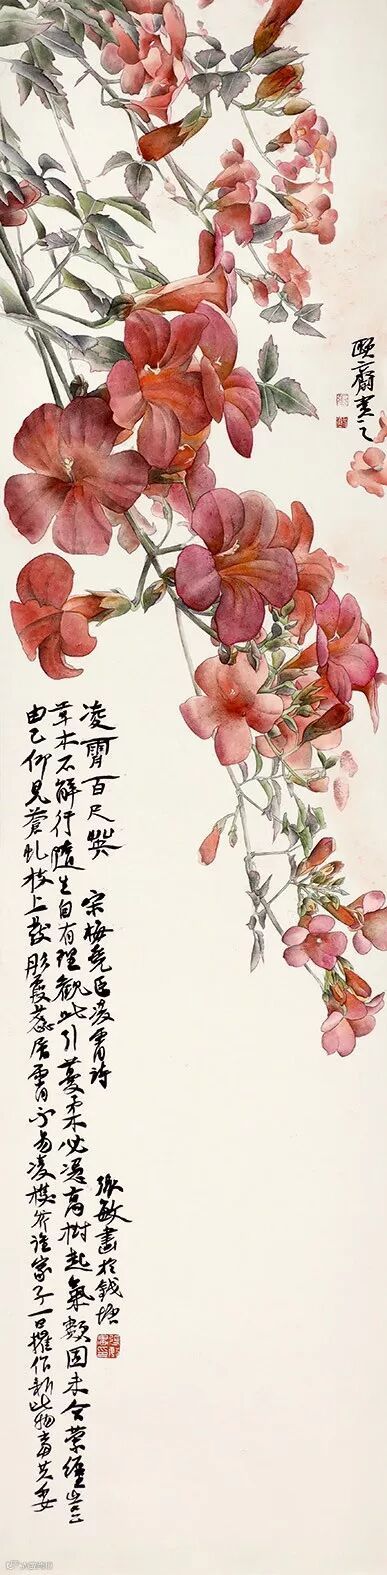 頤齋畫之
凌霄百尺英 宋梅堯臣凌霄詩
草木不解行隨生自有理觀此引蔓柔必憑高樹起氣類固未合縈纏豈
由己仰見蒼虬枝上發彤霞蕊層霄不易凌樵斧誰家子一日摧作新此物當共委
張敏書於錢塘